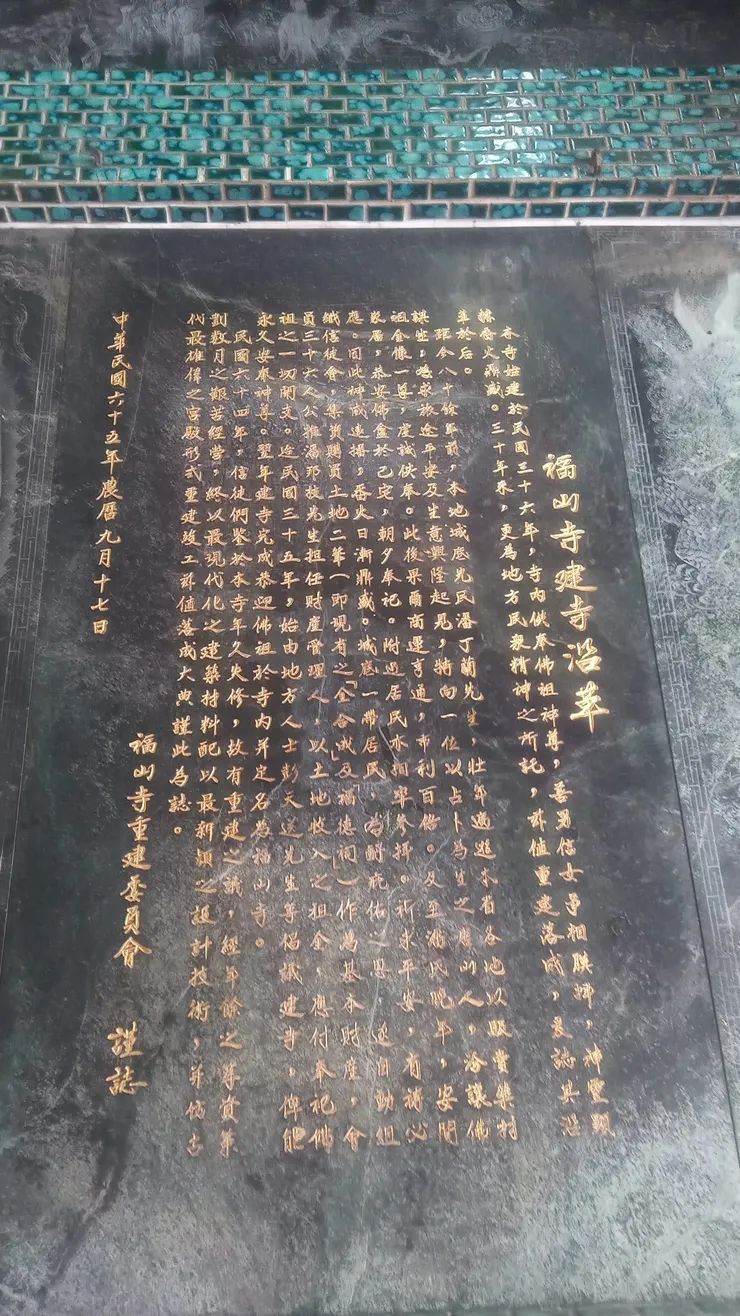 福山寺建寺沿革
本寺始建於民國三十六年，寺內供奉佛祖神尊，善男信女爭相膜拜，神靈顯
赫香火鼎盛。三十年來，更為地方民眾精神之所託，茲值重建落成，爰誌其沿
革於后。
距今八十餘年前，本地城底先民潘丁蘭先生、壯年遨遊本省各地以販賣藥材
謀生，為求旅途平安及生意興隆起見，特向一位以占卜為生之唐山人，洽讓佛
祖金像一尊，虔誠供奉。此後果爾商運亨通，市利百倍。及至潘氏晚年，安閒
家居，恭安佛龕於己宅，朝夕奉祀。附近居民亦相率參拜。祈求平安，有禱必
應。因此神威遠播，香火日漸鼎盛。城底一帶居民，為酬庇佑之恩，遂自動組
織信徒會，集資購買土地二筆（即現有之「金合成」及「福德祠」）作為基本財產，會
員三十六人公推馮邦枝先生担任財產管理人，以土地收入之租金，應付奉祀佛
祖之一切開支。迄民國三十五年，始由地方人士彭天送先生等倡議建寺，俾能
永久安奉神尊。翌年建寺完成恭迎佛祖於寺內并定名為福山寺。
民國六十四年，信徒們鑒於本寺年久失修，故有重建之議，經年餘之籌資策
劃數月之艱苦經營，終以最現代化之建築材料配以最新穎之設計技術，並仿古
代最雄偉之宮殿形式重建竣工茲值落成大典謹此為誌。
福山寺重建委員會 謹誌
中華民國六十五年農曆九月十七日